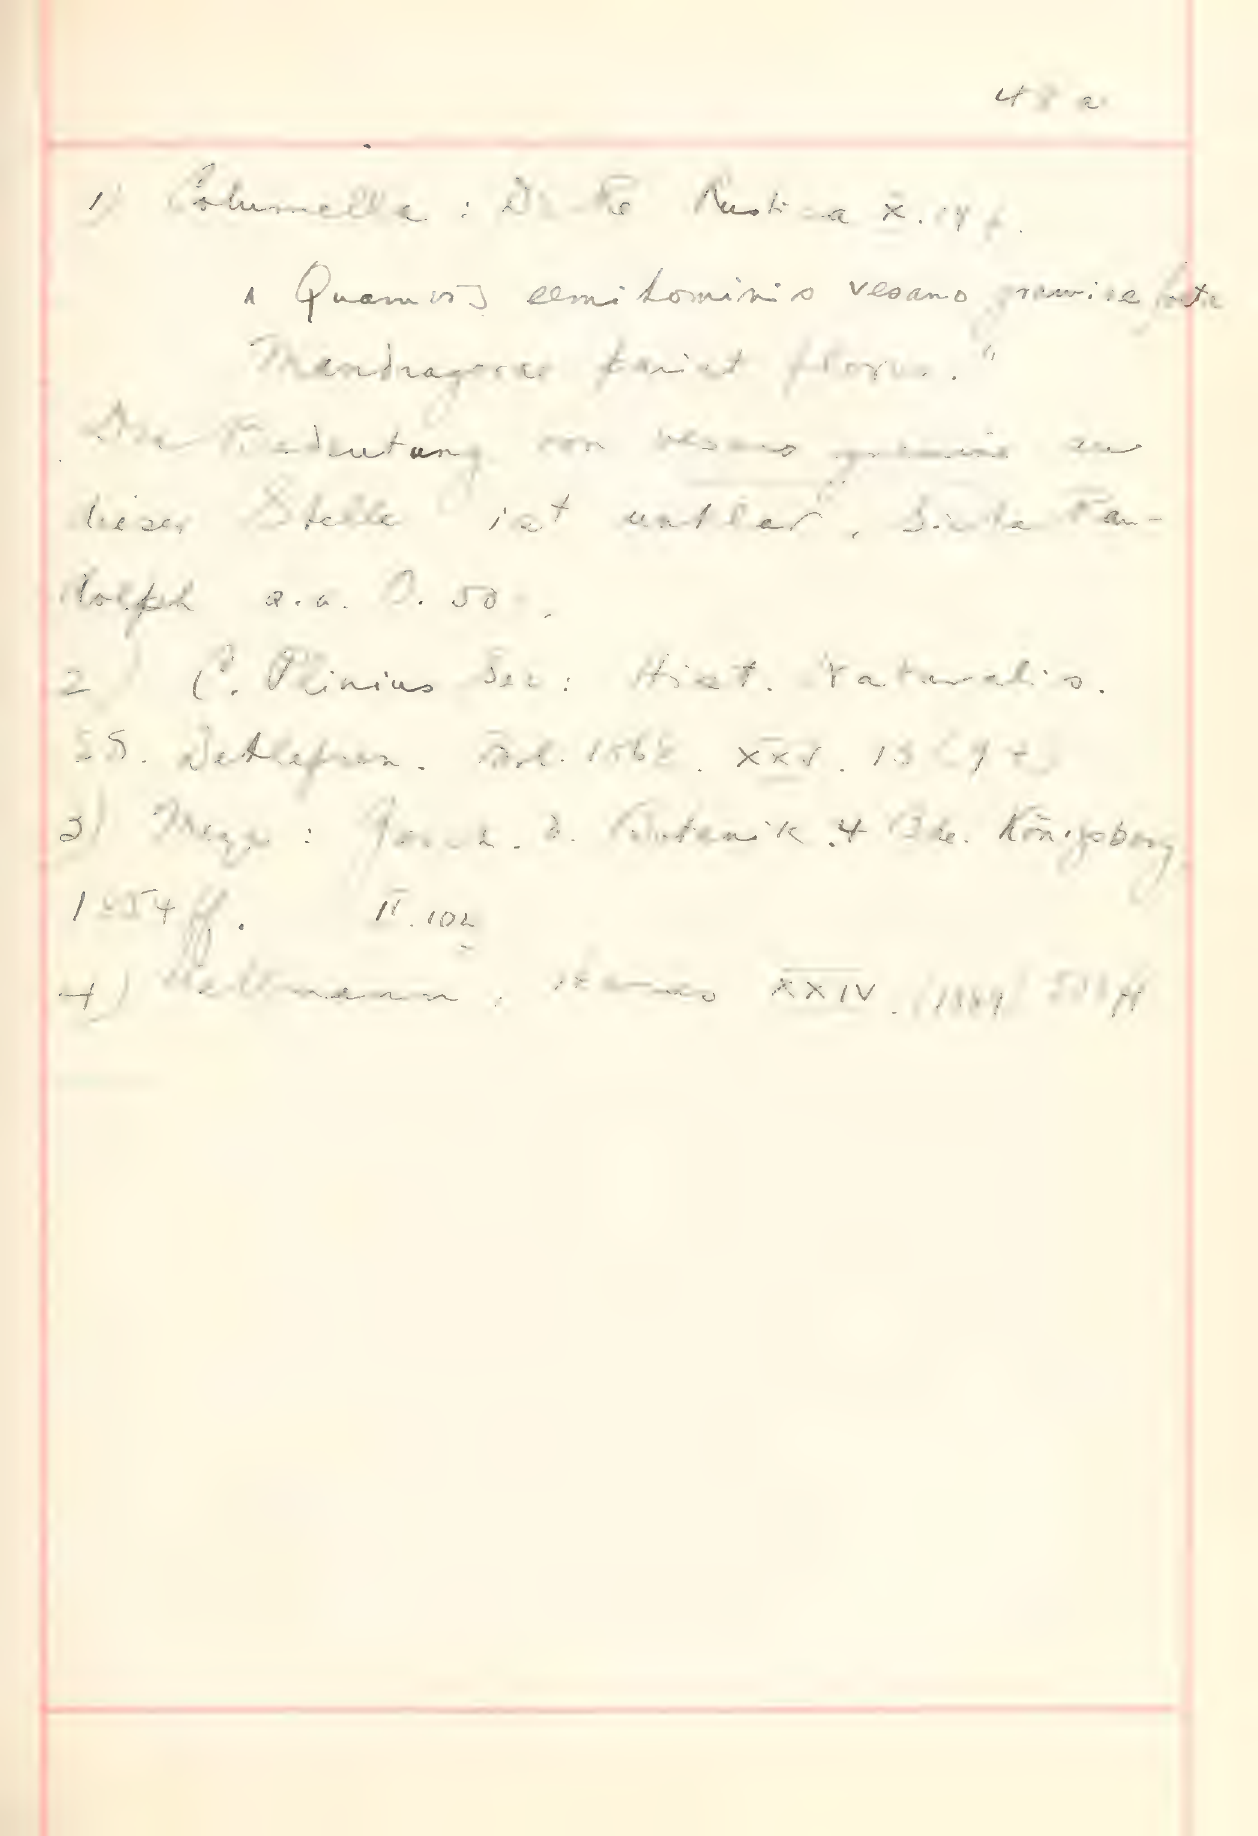 48 a
1) Columella : De Re Rustica X. 19 f.
" Quamvis semihominis vesano gramine foeta
Mandragorae pariat flores. "
Die Bedeutung von vesano gramine an
dieser Stelle ist unklar, Siehe Ran-
dolph a.a. O. 50
2) C. Plinius Sec: Hist. Naturalis.
Detlefsen. Berl. 1868. XXV. 13 (94)
3) Meyer : Gesch. d. Botanik 4 Bde. Königsberg
1854 ff. II. 102
4) Wellmann, Hermes XXIV. (1889)